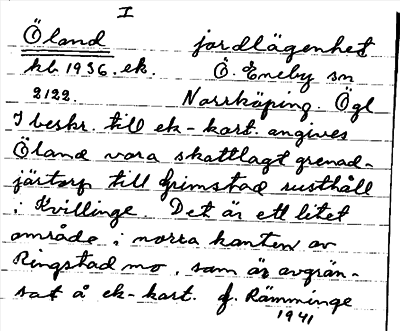 I
Öland jordlägenhet
kb. 1936. ek. Ö. Eneby sn
2122. Norrköping. Ögl
I beskr. till ek-kart. angives
Öland vara skattlagt grenad-
järtorp till Grimstad rusthåll
i Kvillinge. Det är ett litet
område i norra kanten av
Ringstad mo, som är avgrän-
sat å ek-kart. f. Rämminge
1941